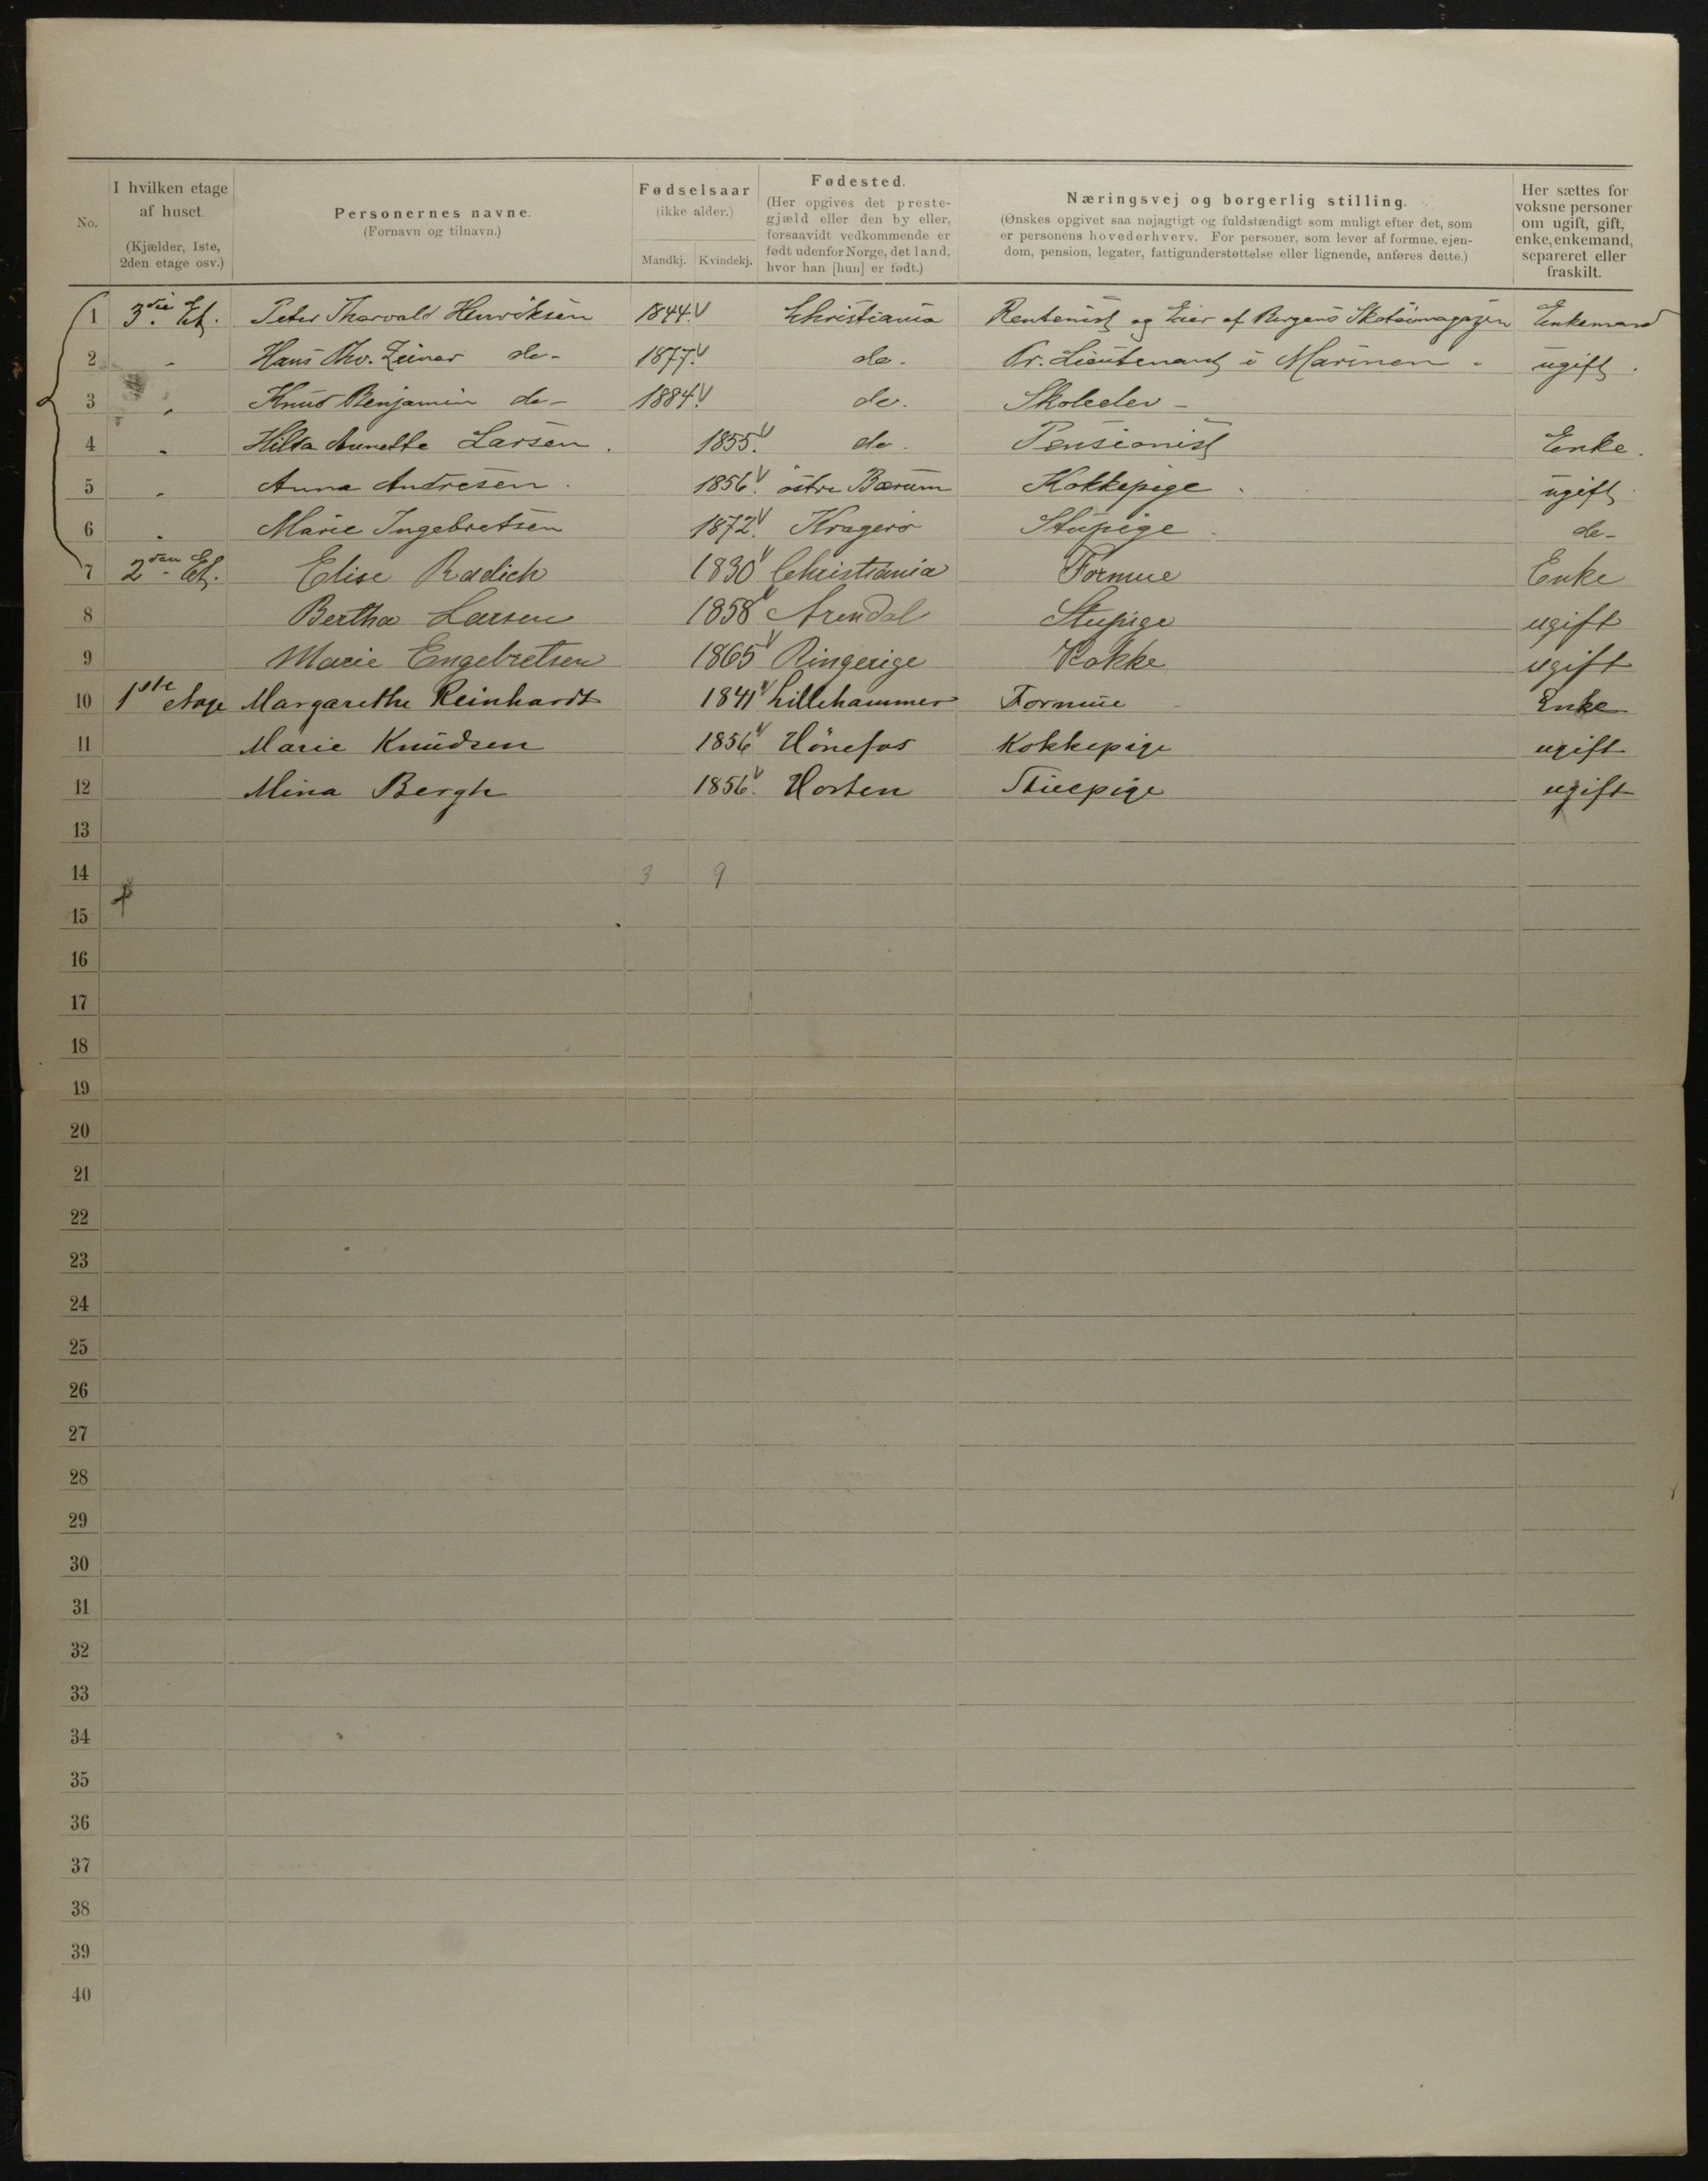 No. | I hvilken etage af huset. (Kjælder, 1ste, 2den etage osv.) | Personernes navne. (Fornavn og tilnavn.) | Fødselsaar (ikke alder.) Mandkj. | Kvindekj. | Fødested. (Her opgives det prestegjæld eller den by eller, forsaavidt vedkommende er født udenfor Norge, det land, hvor han [hun] er født.) | Næringsvej og borgerlig stilling. (Ønskes opgivet saa nøjagtigt og fuldstændigt som muligt efter det, som er personens hovederhverv. For personer, som lever af formue, ejendom, pension, legater, fattigunderstøttelse eller lignende, anføres dette.) | Her sættes for voksne personer om ugift, gift, enke, enkemand, separeret eller fraskilt.
1 3die Et. Peter Thorvald Henriksen 1844. Christiania Rentenist og Eier af Bergens Skotöimagazin Enkemand
2 - Hans Thv. Einar do- 1877. do. Pr. Lieutenant i Marinen. ugift.
3 „ Knud Benjamin do- 1884. do. Skoleelev -
4 „ Hilda Annette Larsen. 1855. do. Pensionist Enke.
5 „ Anna Andresen. 1856. östre Bærum Kokkepige. ugift.
6 „ Marie Ingebretsen 1872. Kragerö Stupige. do-
7 2den Et. Elise Radich 1830 Christiania Formue Enke
8 Bertha Larsen 1858 Arendal Stupige ugift
9 Marie Engebretsen 1865 Ringerige Kokke ugift
10 1ste Etage Margarethe Reinhardt 1841 Lillehammer Formue Enke
11 Marie Knudsen 1856 Hönefos Kokkepige ugift
12 Mina Bergh 1856. Horten Stuepige ugift
13
14 3 9
15
16
17
18
19
20
21
22
23
24
25
26
27
28
29
30
31
32
33
34
35
36
37
38
39
40